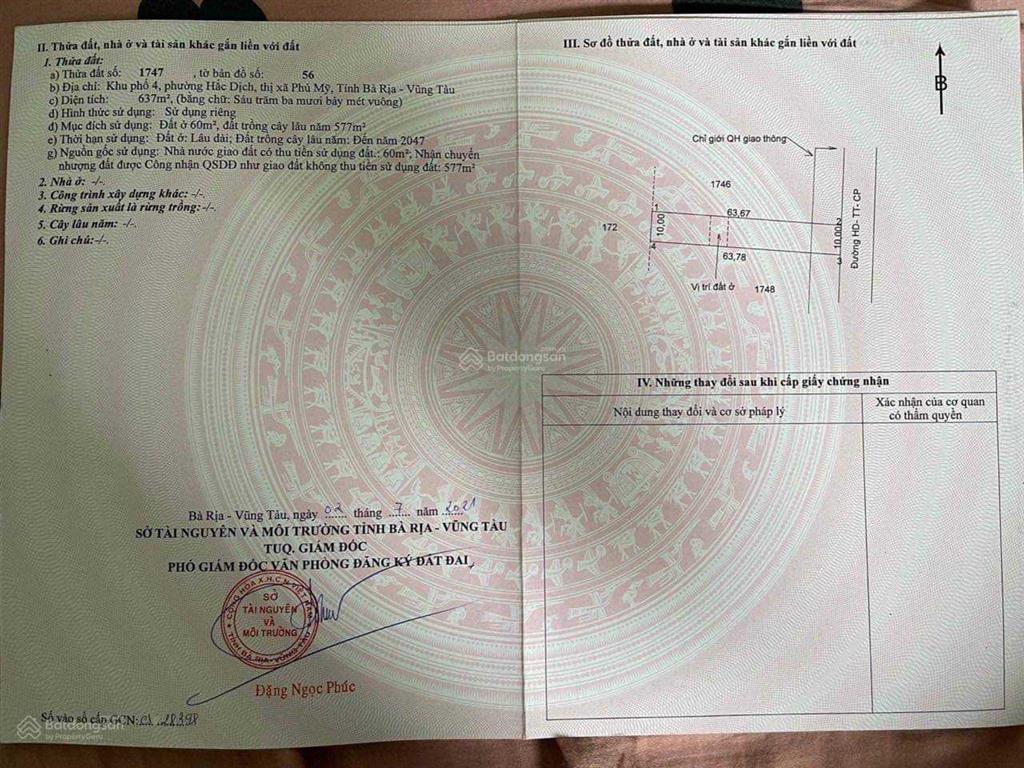 II. Thửa đất, nhà ở và tài sản khác gắn liền với đất
1. Thửa đất:
a) Thửa đất số: 1747 , tờ bản đồ số: 56
b) Địa chỉ: Khu phố 4, phường Hắc Dịch, thị xã Phú Mỹ, Tỉnh Bà Rịa - Vũng Tàu
c) Diện tích: 637m², (bằng chữ: Sáu trăm ba mươi bảy mét vuông)
d) Hình thức sử dụng: Sử dụng riêng
đ) Mục đích sử dụng: Đất ở 60m², đất trồng cây lâu năm 577m²
e) Thời hạn sử dụng: Đất ở: Lâu dài; Đất trồng cây lâu năm: Đến năm 2047
g) Nguồn gốc sử dụng: Nhà nước giao đất có thu tiền sử dụng đất.: 60m²; Nhận chuyển
nhượng đất được Công nhận QSDĐ như giao đất không thu tiền sử dụng đất: 577m²
2. Nhà ở: -/-.
3. Công trình xây dựng khác: -/-.
4. Rừng sản xuất là rừng trồng: -/-.
5. Cây lâu năm: -/-.
6. Ghi chú: -/-.
Bà Rịa - Vũng Tàu, ngày 02 tháng 7 năm 2021
SỞ TÀI NGUYÊN VÀ MÔI TRƯỜNG TỈNH BÀ RỊA - VŨNG TÀU
TUQ. GIÁM ĐỐC
PHÓ GIÁM ĐỐC VĂN PHÒNG ĐĂNG KÝ ĐẤT ĐAI
CỘNG HÒA X.H.C.N VIỆT NAM
SỞ
TÀI NGUYÊN
VÀ
MÔI TRƯỜNG
TỈNH BÀ RỊA - VŨNG TÀU
Đặng Ngọc Phúc
Số vào sổ cấp GCN: CS 28398
Batdongsan
by PropertyGuru
III. Sơ đồ thửa đất, nhà ở và tài sản khác gắn liền với đất
B
Chỉ giới QH giao thông
1746
1
63,67
2
172
10,00
10,00
4
63,78
3
Đường HD- TT- CP
Vị trí đất ở
1748
Batdongsan
by PropertyGuru
IV. Những thay đổi sau khi cấp giấy chứng nhận
Nội dung thay đổi và cơ sở pháp lý
Xác nhận của cơ quan
có thẩm quyền